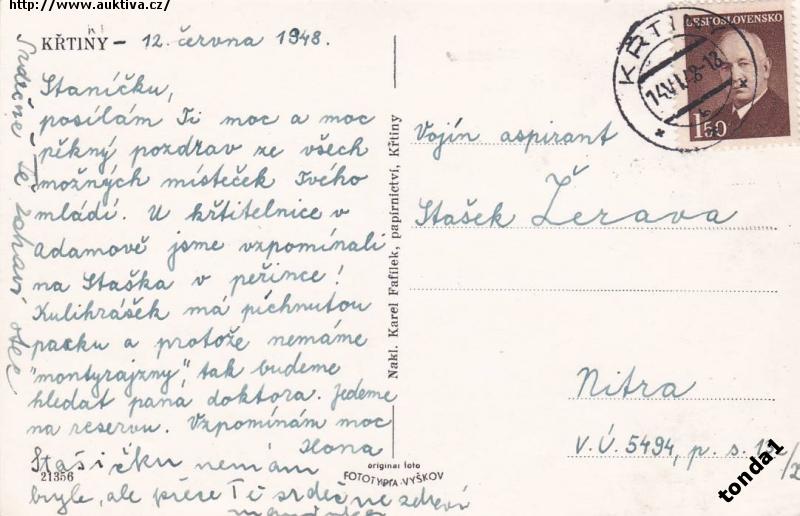 https://www.auktiva.cz/
KŘTINY - 12. června 1948.
Staníčku,
posílám Ti moc a moc
pěkný pozdrav ze všech
možných místeček Tvého
mládí. U křtitelnice v
Adamově jsme vzpomínali
na Staška v peřince!
Kulihrášek má píchnutou
packu a protože nemáme
"montyrajzny", tak budeme
hledat pana doktora. Jedeme
na reservu. Vzpomínám moc
Ilona
Stašíčku nemám
bryle, ale přece Tě srdečně zdraví
Srdečně Tě zdraví otec
21356
original foto
FOTOTYPIA-VYŠKOV
Nakl. Karel Fafílek, papírnictví, Křtiny
ČESKOSLOVENSKO
1.50
KŘTINY
14.VI.48-18
Vojín aspirant
Stašek Žerava
Nitra
V.Ú. 5494, p. s.
tonda1